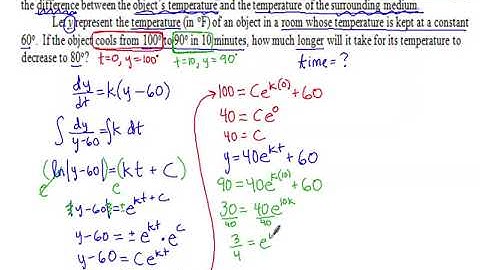 the difference between the object's temperature and the temperature of the surrounding medium.
Let y represent the temperature (in °F) of an object in a room whose temperature is kept at a constant
60°. If the object cools from 100° to 90° in 10 minutes, how much longer will it take for its temperature to
decrease to 80°?
t=0, y=100°
t=10, y=90°
time=?
dy/dt = k(y-60)
∫ dy/y-60 = ∫k dt
(ln|y-60| = (kt + C)
e
e
|y-60| = ± e^kt+C
y-60 = ± e^kt • e^C
y-60 = Ce^kt
100 = Ce^k(0) + 60
40 = Ce^0
40 = C
y = 40e^kt + 60
90 = 40e^k(10) + 60
30/40 = 40e^10k/40
3/4 = e